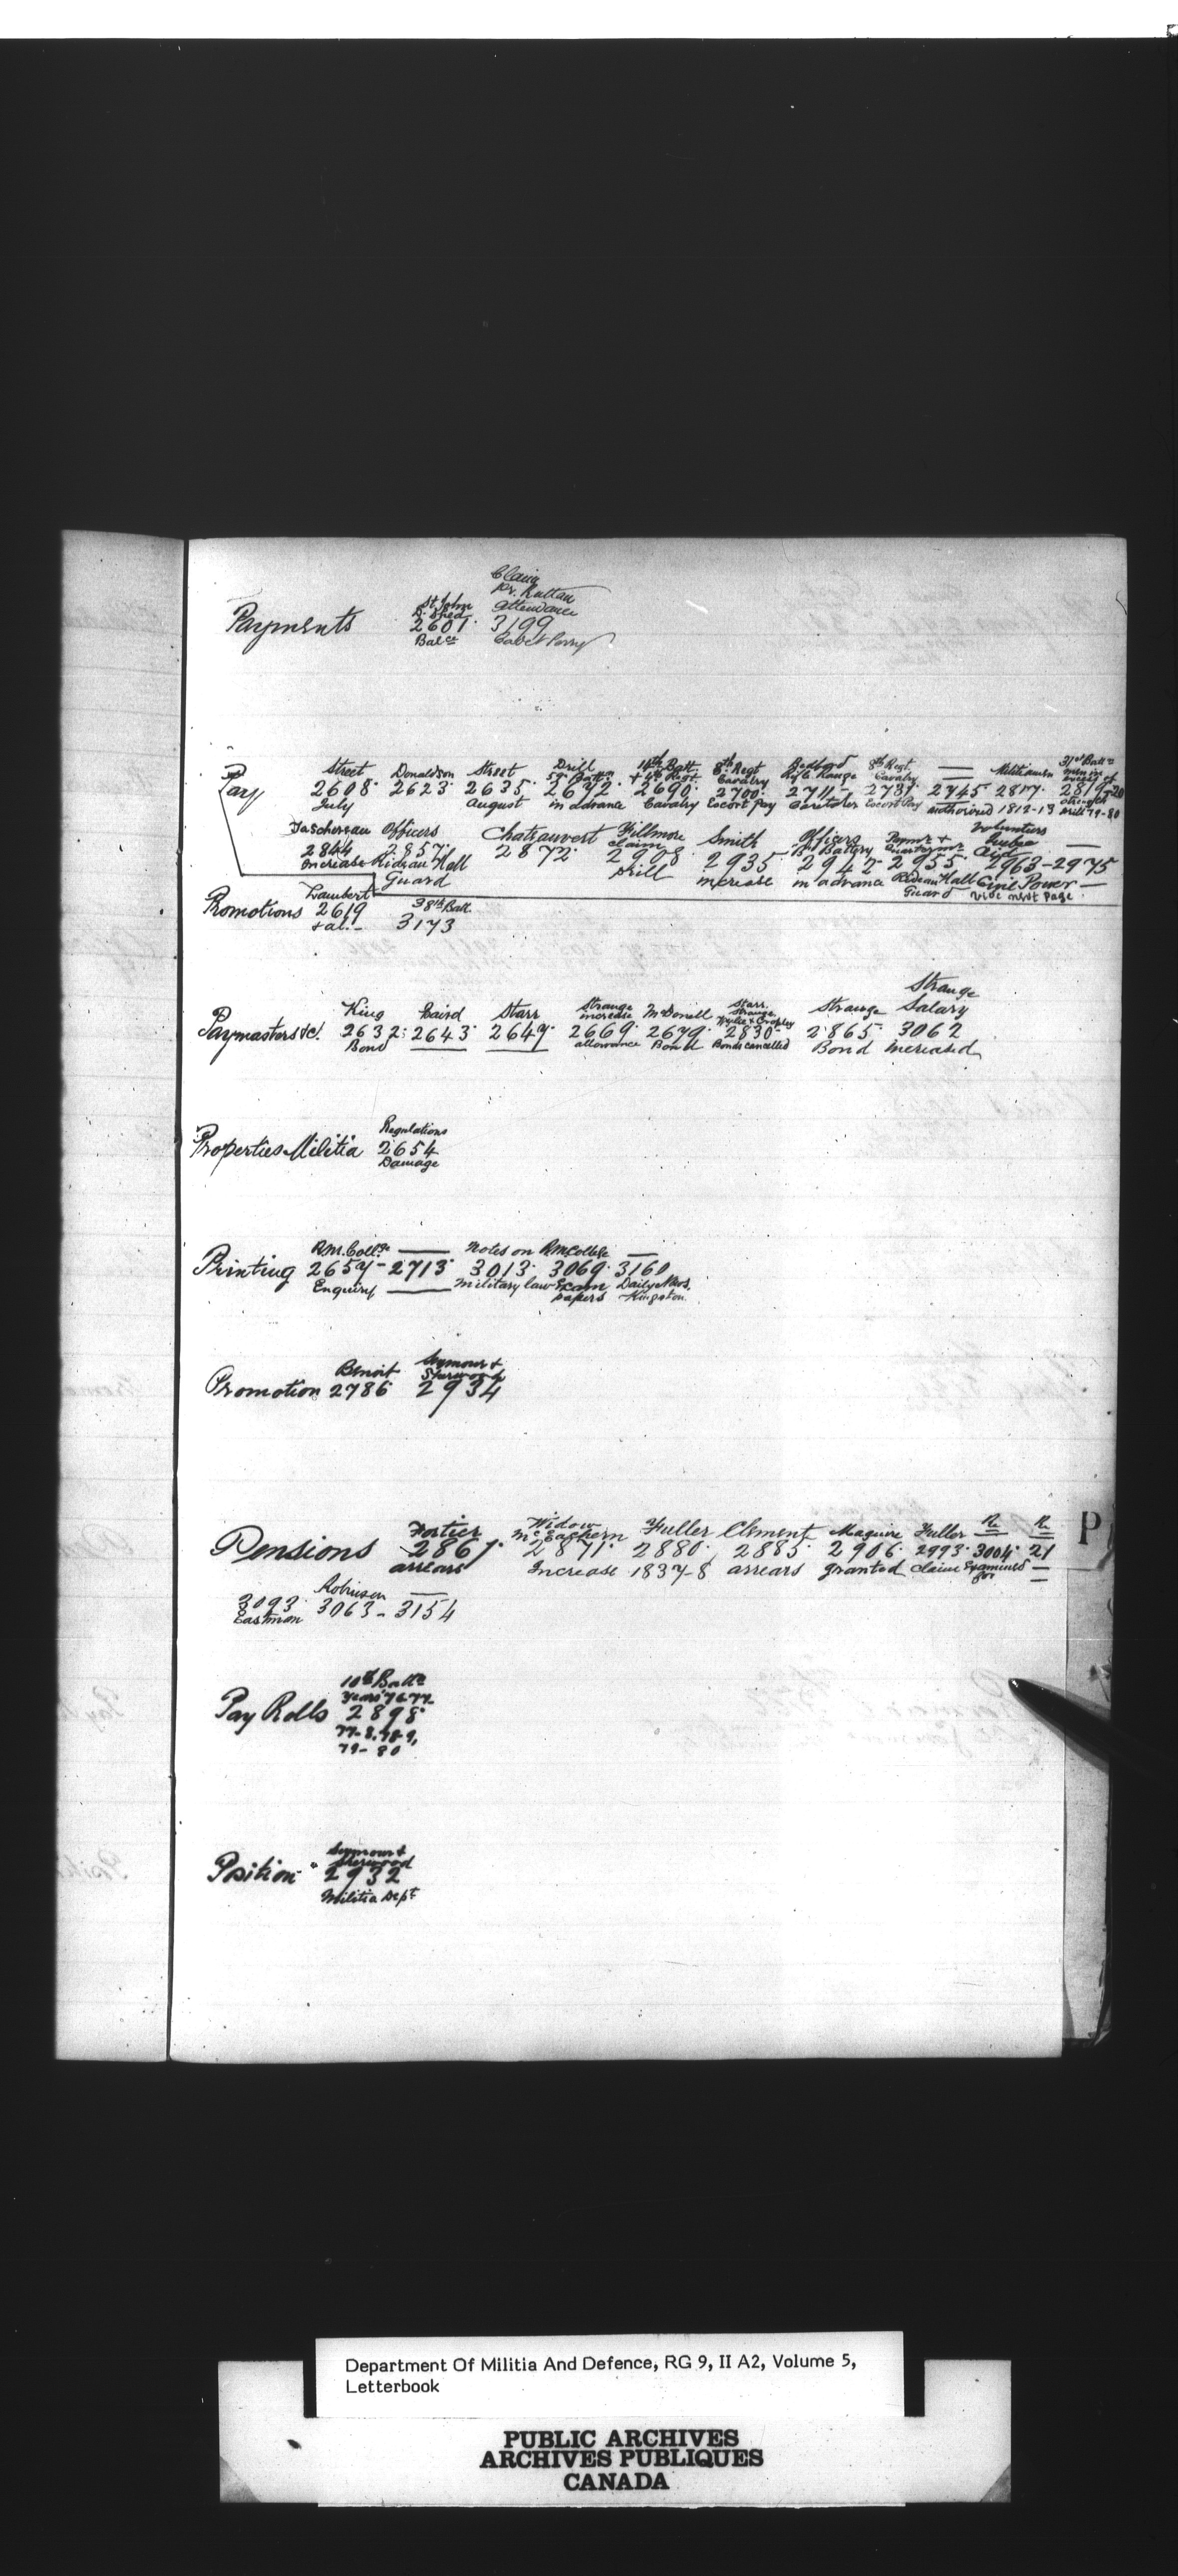 Claim
Dr. Ruttan
St John attendance
D. Shed
Payments 2601. 3199
Bal ce
Street Donaldson Street Drill 14th Batt. 8th Regt Bedford 8th Regt. — Militiamen 31st Battn
5th Battn + 4th Regt. Cavalry Rifle Range Cavalry — men in excess of
Pay 2608. 2623. 2635. 2672. 2690. 2700. 2711- 2731. 2745 2817. 2819-20
July August in advance Cavalry Escort pay Caretaker Escort Pay authorized 1812-13 strength drill 79-80
Taschereau Officers Chateauvert Fillmore Smith Officers Paymr + Volunteers
claim B. Battery Quartermr Quebec —
2844 2857. 2872. 2908. 2935. 2942- 2955. 2963-2975
Increase Rideau Hall drill increase in advance Rideau Hall Civil Power —
Guard Guard vide next page
Lambert 38th Batt.
Promotions 2619 3173
+ al. -
Strange
King Baird Starr Strange McDonell Starr, Strange Salary
increase Strange,
Paymasters &c! 2632. 2643. 2649. 2669. 2679. 2830- 2865. 3062
Bond allowance Bond Bonds cancelled Bond Increased
Regulations
Properties Militia 2654
Damage
R.M. Collge — Notes on R.M. College —
Printing 2657- 2713. 3013. 3069. 3160
Enquiry — Military law Exam Daily News.
papers Kingston.
Benoit Seymour +
Sherwood
Promotion 2786 2934
Fortier Widow McEachern Fuller Clement Maguire Fuller R. R.
Pensions 2867. 2871. 2880. 2885. 2906. 2993. 3004. 21
arrears Increase 1837-8 arrears granted claim Examined —
for
Robinson —
3093. 3063- 3154
Eastman
10th Battn
Years 76-77
Pay Rolls 2898.
77-8, 78-9,
79-80
Seymour +
Sherwood
Position 2932
Militia Dept
P
Department Of Militia And Defence, RG 9, II A2, Volume 5,
Letterbook
PUBLIC ARCHIVES
ARCHIVES PUBLIQUES
CANADA